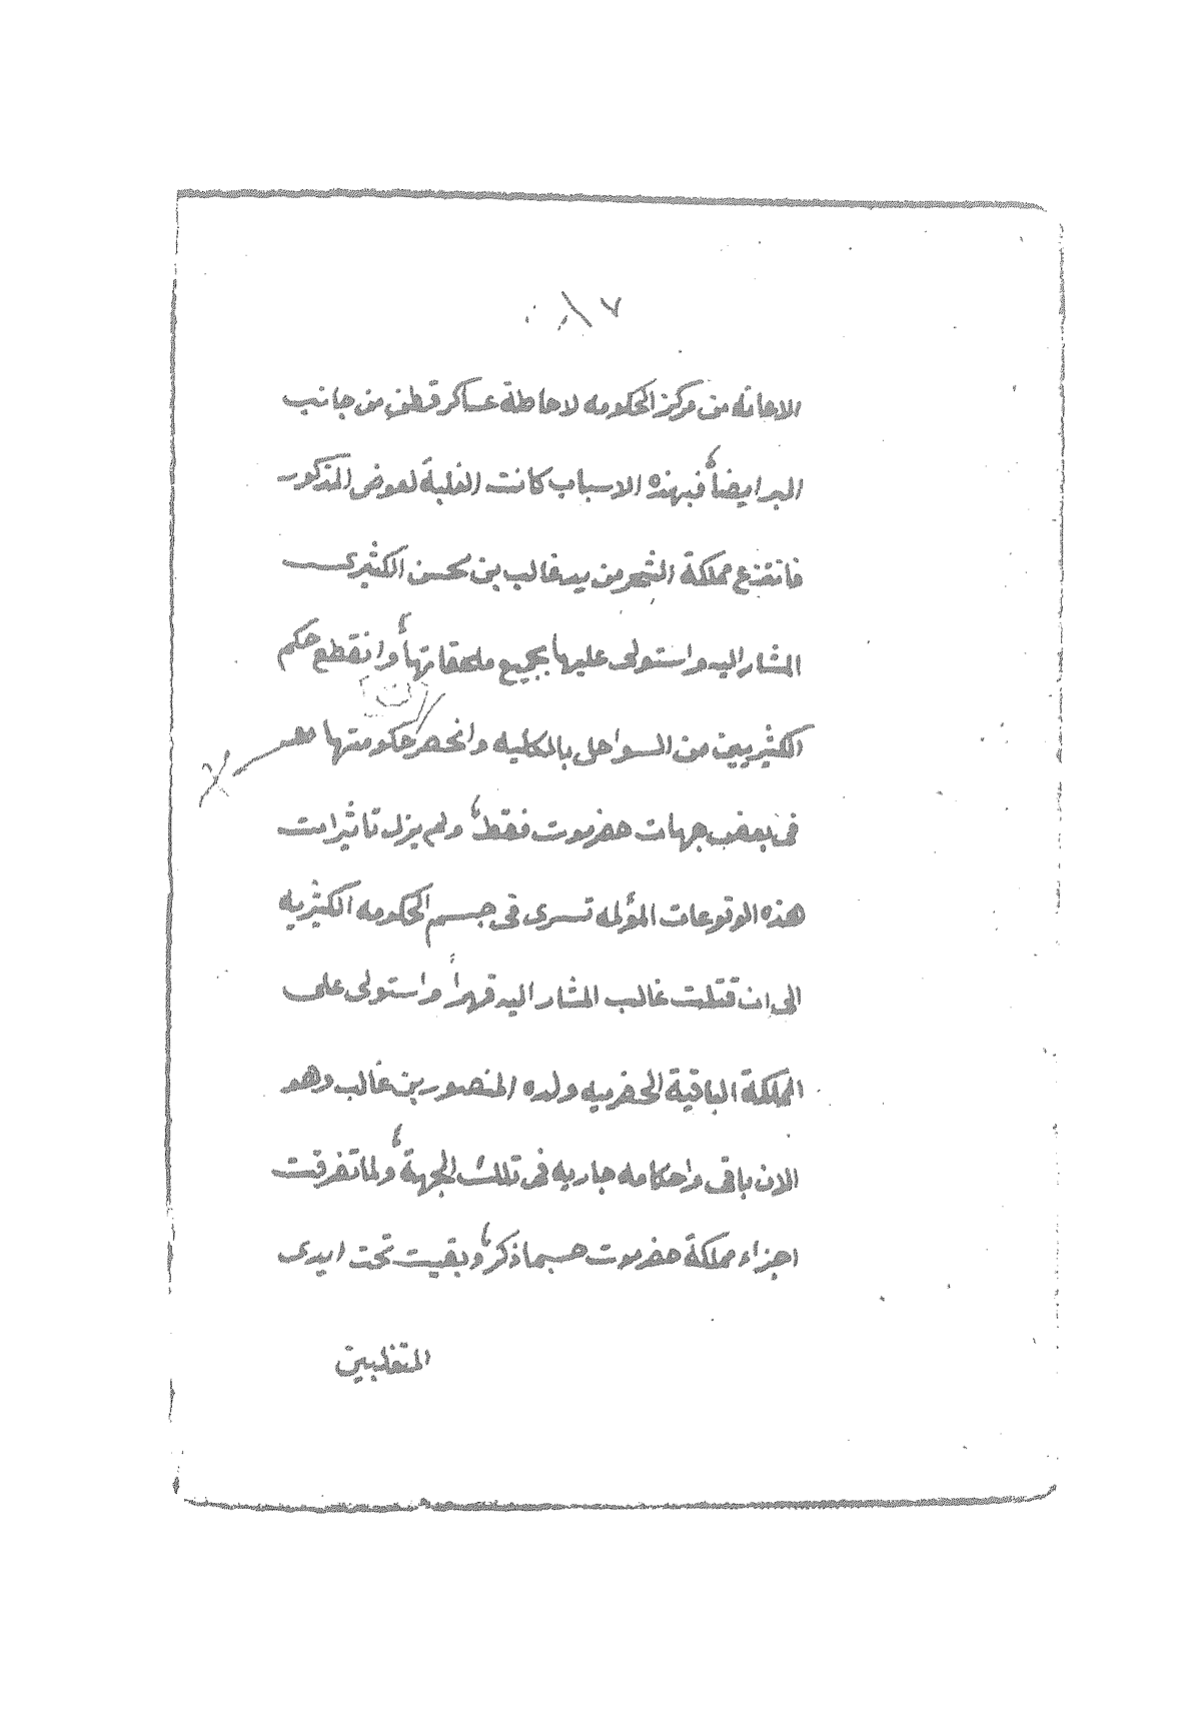 الاعانه من مركز الحكومه لاحاطة عساكر قطن من جانب
البر ايضاً، فبهذه الاسباب كانت الغلبة لعوض المذكور
فانتزع مملكة الشحر من يد غالب بن محسن الكثيرى
المشار اليه واستولى عليها بجميع ملحقاتها، وانقطع حكم
الكثيريين من السواحل بالكليه وانحصر حكومتها
فى بعض جهات حضرموت فقط، ولم يزل تاثيرات
هذه الوقوعات المؤلمه تسرى فى جسم الحكومه الكثيريه
الى ان قتلت غالب المشار اليه قهراً واستولى على
المملكة الباقية الحضرميه ولده المنصور بن غالب وهو
الان باقى واحكامه جاريه فى تلك الجهة، ولما تفرقت
اجزاء مملكة حضرموت حسبما ذكر، وبقيت تحت ايدى
المتغلبين